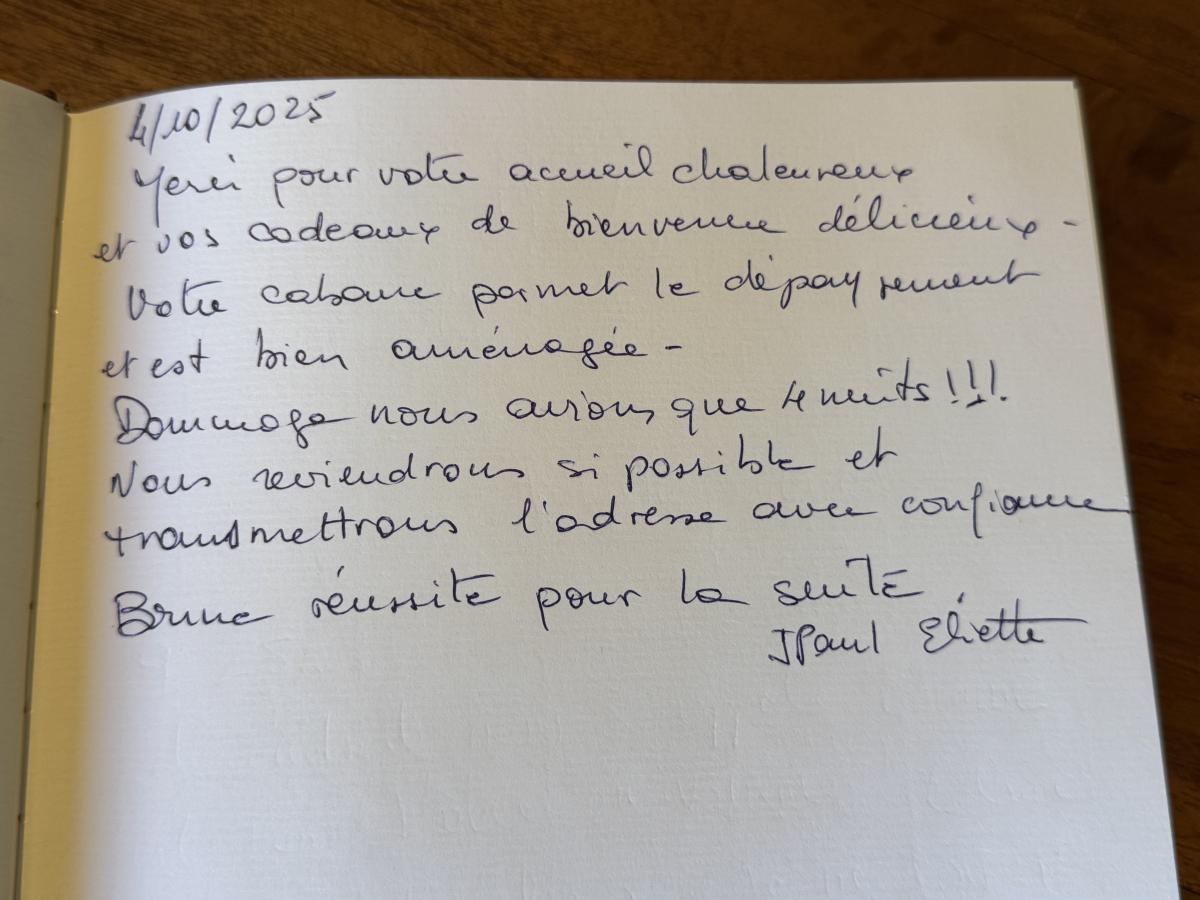 4/10/2025
Merci pour votre accueil chaleureux
et vos cadeaux de bienvenue délicieux -
Votre cabane permet le dépaysement
et est bien aménagée -
Dommage nous avions que 4 nuits !!!
Nous reviendrons si possible et
transmettrons l'adresse avec confiance
Bonne réussite pour la suite.
JPaul Eliette